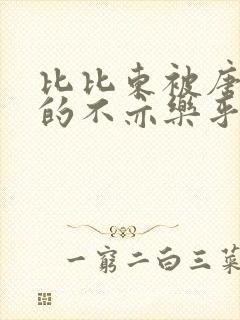 比比东被唐
的不亦乐乎
一穷二白三菜